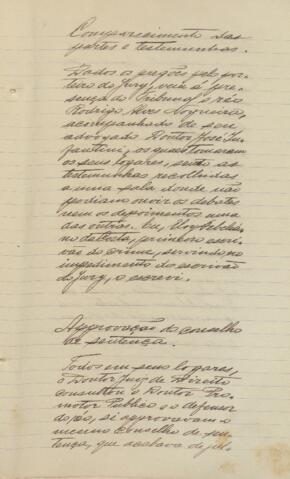 Comparecimento das
partes e testemunhas.
Dados os pregões pelo por-
teiro do Jury, veiu á pre-
sença do Tribunal o réo
Rodrigo Alves Nogueira,
acompanhado de seu
advogado Doutor José In-
fantini, os quaes tomaram
os seus logares, sendo as
testemunhas recolhidas
a uma sala donde não
podiam ouvir os debates
nem os depoimentos umas
das outras. Eu,
da Costa, primeiro escri-
vão do crime, servindo no
impedimento do escrivão
do Jury, o escrevi.
Approvação do conselho
de sentença.
Todos em seus logares,
o Doutor Juiz de Direito
consultou o Doutor Pro-
motor Publico e o defensor
do réo, si approvavam o
mesmo conselho de sen-
tença, que acabava de